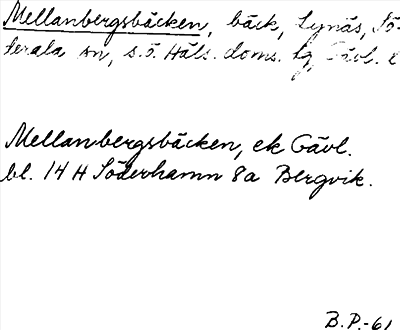 Mellanbergsbäcken, bäck, Lynäs, Sö-
derala sn, s.ö. Häls. doms. tg, Gävl. l
Mellanbergsbäcken, ek Gävl.
bl. 14 H Söderhamn 8a Bergvik.
B.P.-61